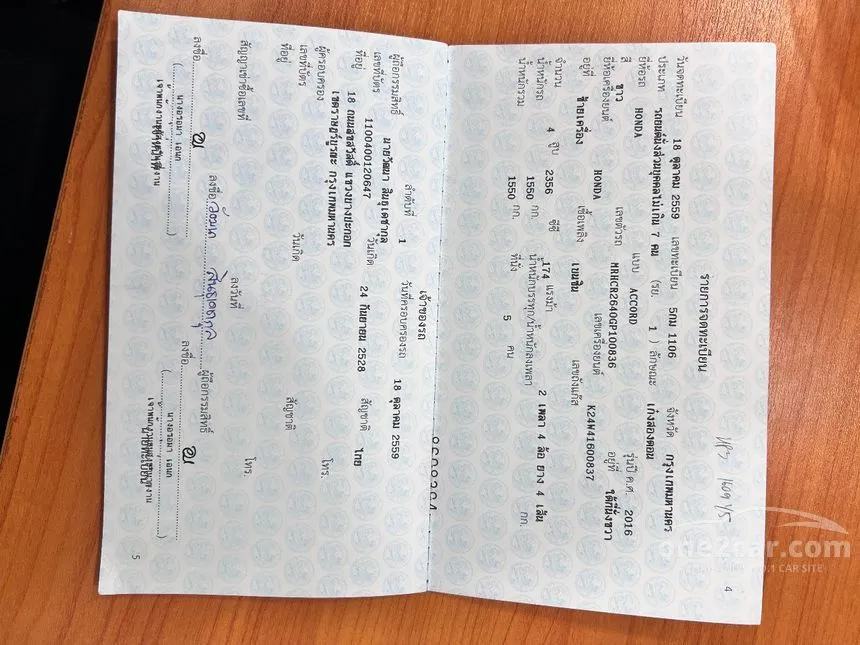 รายการจดทะเบียน
วันจดทะเบียน 18 ตุลาคม 2559 เลขทะเบียน 5กม 1106 จังหวัด กรุงเทพมหานคร
ประเภท รถยนต์นั่งส่วนบุคคลไม่เกิน 7 คน (รย. 1 ) ลักษณะ เก๋งสองตอน
ยี่ห้อรถ HONDA แบบ ACCORD รุ่นปี ค.ศ. 2016
สี ขาว เลขตัวรถ MRHCR2640GP100836 อยู่ที่ ใต้ที่นั่งขวา
ยี่ห้อเครื่องยนต์ HONDA เลขเครื่องยนต์ K24W41600837
อยู่ที่ ซ้ายเครื่อง เชื้อเพลิง เบนซิน เลขถังแก๊ส
จำนวน 4 สูบ 2356 ซีซี 174 แรงม้า 2 เพลา 4 ล้อ ยาง 4 เส้น
น้ำหนักรถ 1550 กก. น้ำหนักบรรทุก/น้ำหนักลงเพลา กก.
น้ำหนักรวม 1550 กก. ที่นั่ง 5 คน
4
one2car.com
NO.1 CAR SITE
เจ้าของรถ
ลำดับที่ 1 วันที่ครอบครองรถ 18 ตุลาคม 2559
ผู้ถือกรรมสิทธิ์ นายวัฒนา สินธุเดชากุล
เลขที่บัตร 1100400120647 วันเกิด 24 กันยายน 2528 สัญชาติ ไทย
ที่อยู่ 18 ถนนสุขสวัสดิ์ แขวงบางปะกอก
เขตราษฎร์บูรณะ กรุงเทพมหานคร โทร.
ผู้ครอบครอง
เลขที่บัตร วันเกิด สัญชาติ
ที่อยู่
โทร.
สัญญาเช่าซื้อเลขที่ ลงวันที่
ลงชื่อ ผู้ถือกรรมสิทธิ์
ลงชื่อ ลงชื่อ
5